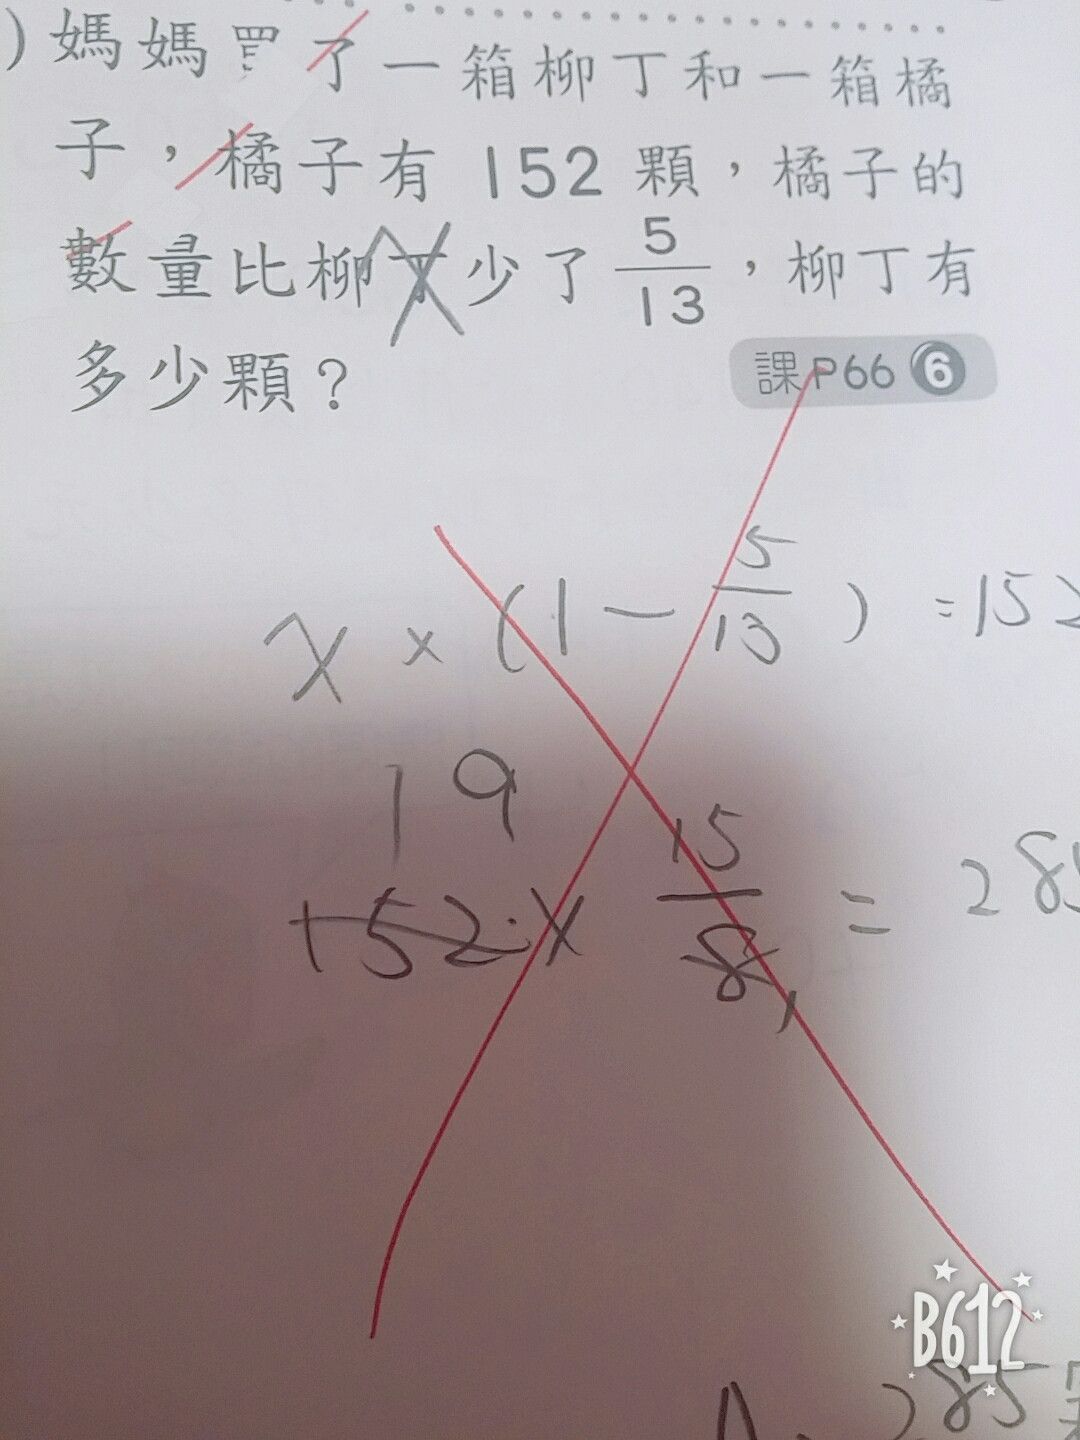 )媽媽買了一箱柳丁和一箱橘
子,橘子有 152 顆,橘子的
數量比柳丁少了 5/13,柳丁有
多少顆?
課P66 6
x × (1 − 5/13) = 152
19
152 × 15/8 = 285
1
B612
A: 285